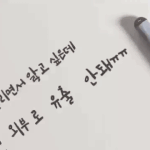 리면서 알고 싶은데
외부로 유출 안돼ㅠㅠ